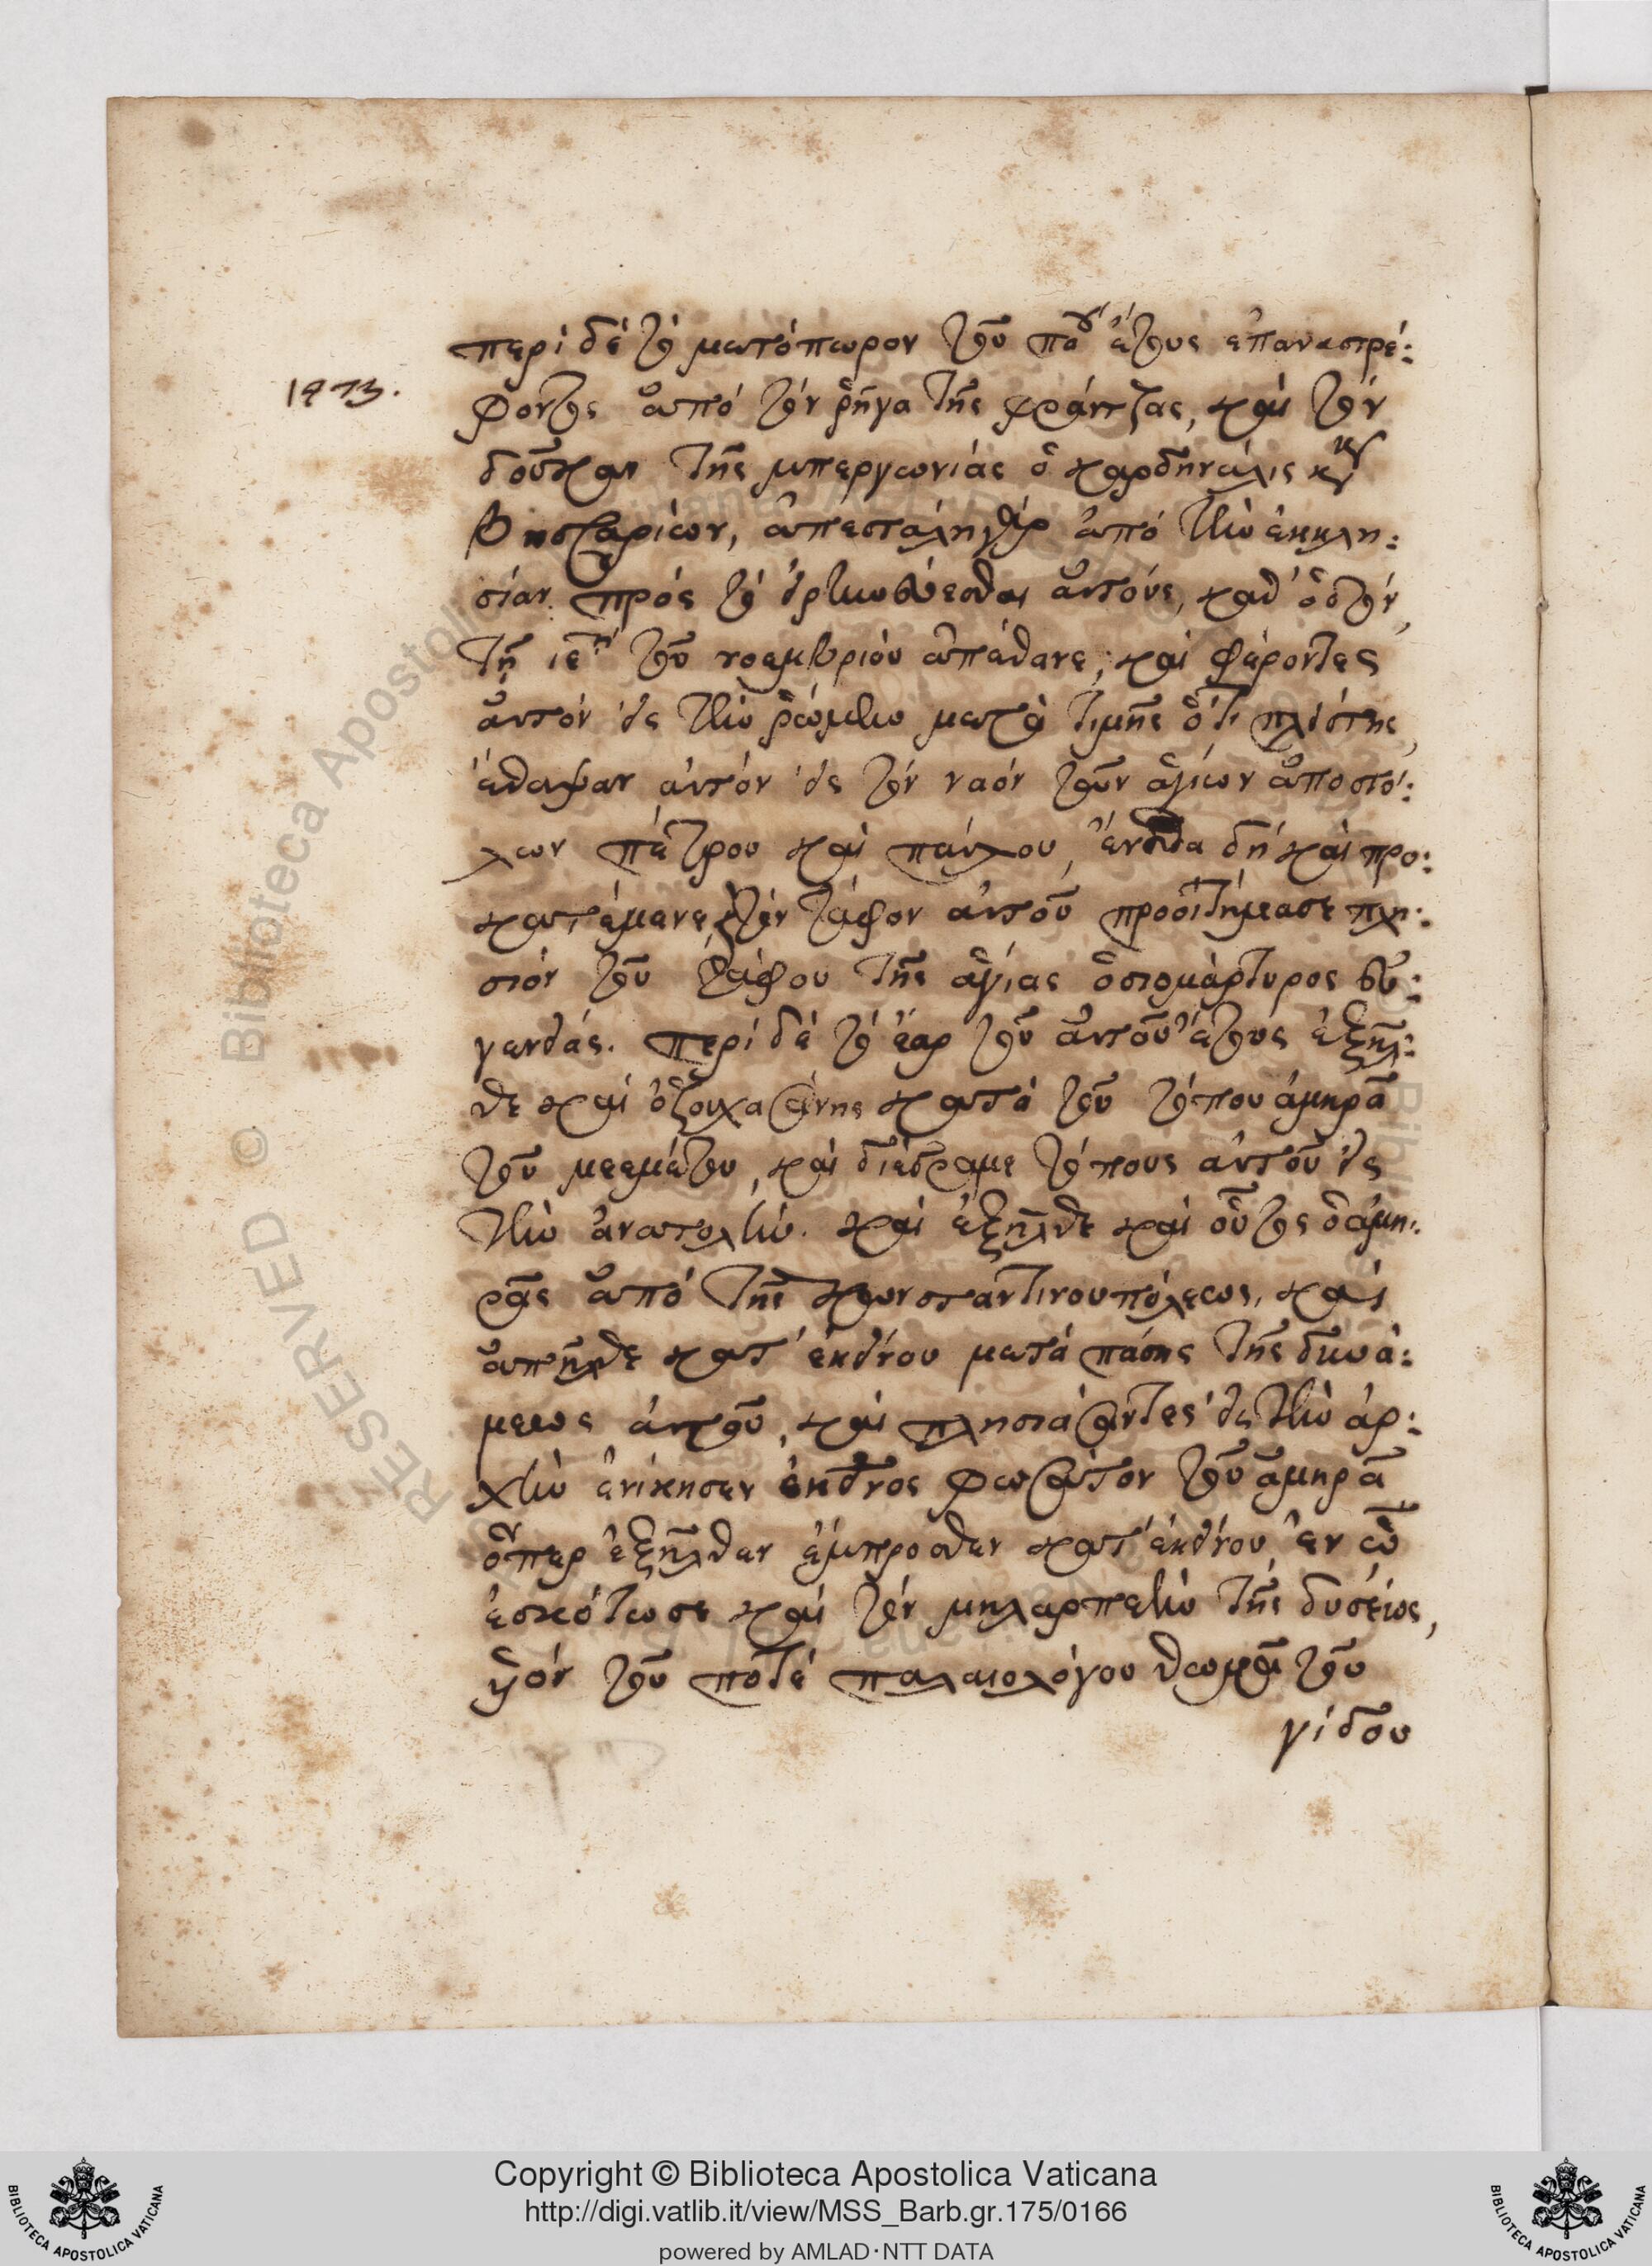 περὶ δὲ τὸ μετόπωρον τοῦ πα΄ ἔτους ἐπαναστρέ:
1473.
φοντος ἀπὸ τὸν ῥῆγα τῆς φράντζας, καὶ τὸν
δοῦκαν τῆς μπεργωνίας ὁ καρδηνάλις
βησσαρίων, ἀπεστάλη γὰρ ἀπὸ τὴν ἐκκλη:
σίαν πρὸς τὸ εἰρηνεύεσθαι αὐτούς, καθ' ὁδὸν,
τῇ ιεῃ τοῦ νοεμβρίου ἀπέθανε, καὶ φέροντες
αὐτὸν εἰς τὴν ῥώμην μετὰ τιμῆς ὅτι πλείστης,
ἔθαψαν αὐτὸν εἰς τὸν ναὸν τῶν ἁγίων ἀποστό:
λων πέτρου καὶ παύλου, ἔνθα δὴ καὶ προ:
κατέμενε, τὸν τάφον αὐτοῦ προοιτήμασε πλη:
σιόν τοῦ τάφου τῆς ἁγίας ὁσιομάρτυρος εὐ:
γενθάς. περὶ δὲ τὸ ἔαρ τοῦ αὐτοῦ ἔτους ἐξῆλ:
θε καὶ ὀζουχασάνης κατὰ τοῦ τόπου ἀμηρᾶ
τοῦ μεεμέτου, καὶ διέδραμε τόπους αὐτοῦ εἰς
τὴν ἀνατολὴν. καὶ ἐξῆλθε καὶ οὗτος ὁ ἀμη:
ρᾶς ἀπὸ τῆς κωνσταντινουπόλεως, καὶ
ἀπῆλθε κατ' ἐκείνου μετὰ πάσης τῆς δυνά:
μεως αὐτοῦ, καὶ πλησιάσαντες εἰς τὴν ἀρ:
χὴν ἐνίκησεν ἐκεῖνος φωσάτον τοῦ ἀμηρᾶ
ὅπερ ἐξῆλθεν ἔμπροσθεν κατ' ἐκείνου, ἐν ᾧ
ἐσκότωσε καὶ τὸν μπλαρπεὴν τῆς δυσέως,
υἱὸν τοῦ ποτὲ παλαιολόγου θωμᾶ τοῦ
γίδου
Copyright © Biblioteca Apostolica Vaticana
http://digi.vatlib.it/view/MSS_Barb.gr.175/0166
powered by AMLAD·NTT DATA